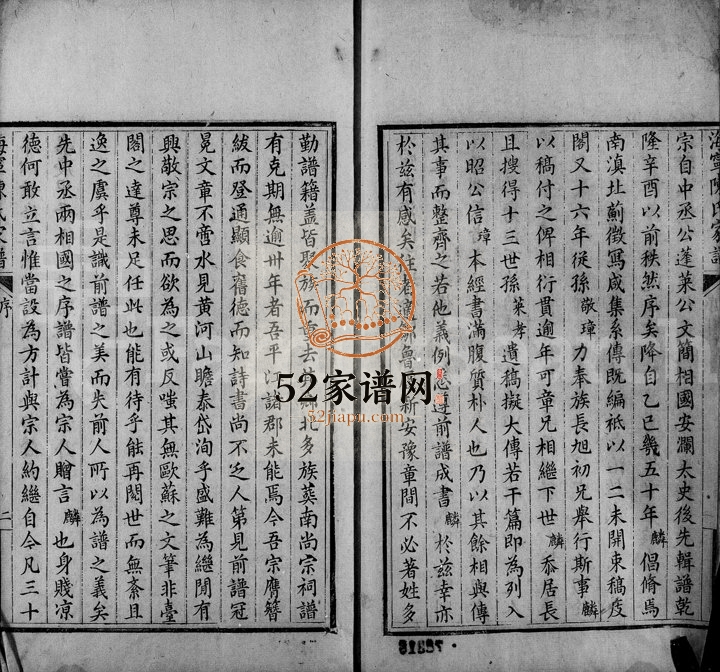 海寧陳氏家譜
宗自中丞公蓬萊公文簡相國安瀾太史後先輯譜乾
隆辛酉以前秩然序矣降自乙巳幾五十年麟倡脩焉
南滇北薊徵寫咸集系傳既編袛以一二未開東稿庋
閣又十六年從孫敬璋力奉族長旭初兄舉行斯事麟
以稿付之俾相衍貫逾年可章兄相繼下世麟忝居長
且搜得十三世孫萊孝遺稿擬大傳若干篇即為列入
以昭公信璋本經書滿腹質朴人也乃以其餘相與傳
其事而整齊之若他義例悉遵前譜成書麟於茲幸亦
於茲有感矣
安豫章間不必著姓多
勤譜籍蓋皆聚族而重去其鄉北多族葬南尚宗祠譜
有克期無逾卅年者吾平江諸郡未能焉今吾宗膺簪
紱而登通顯食舊德而知詩書尚不乏人第見前譜冠
冕文章不啻水見黃河山瞻泰岱洵乎盛難為繼閒有
興敬宗之思而欲為之或反嗤其無歐蘇之文筆非臺
閣之達尊未足任此也能有待乎能再閱世而無紊且
逸之虞乎是讖前譜之美而失前人所以為譜之義矣
先中丞兩相國之序譜皆嘗為宗人贈言麟也身賤凉
德何敢立言惟當設為方計與宗人約繼自今凡三十
海寧陳氏家譜
序
二
52家譜网
52jiapu.com